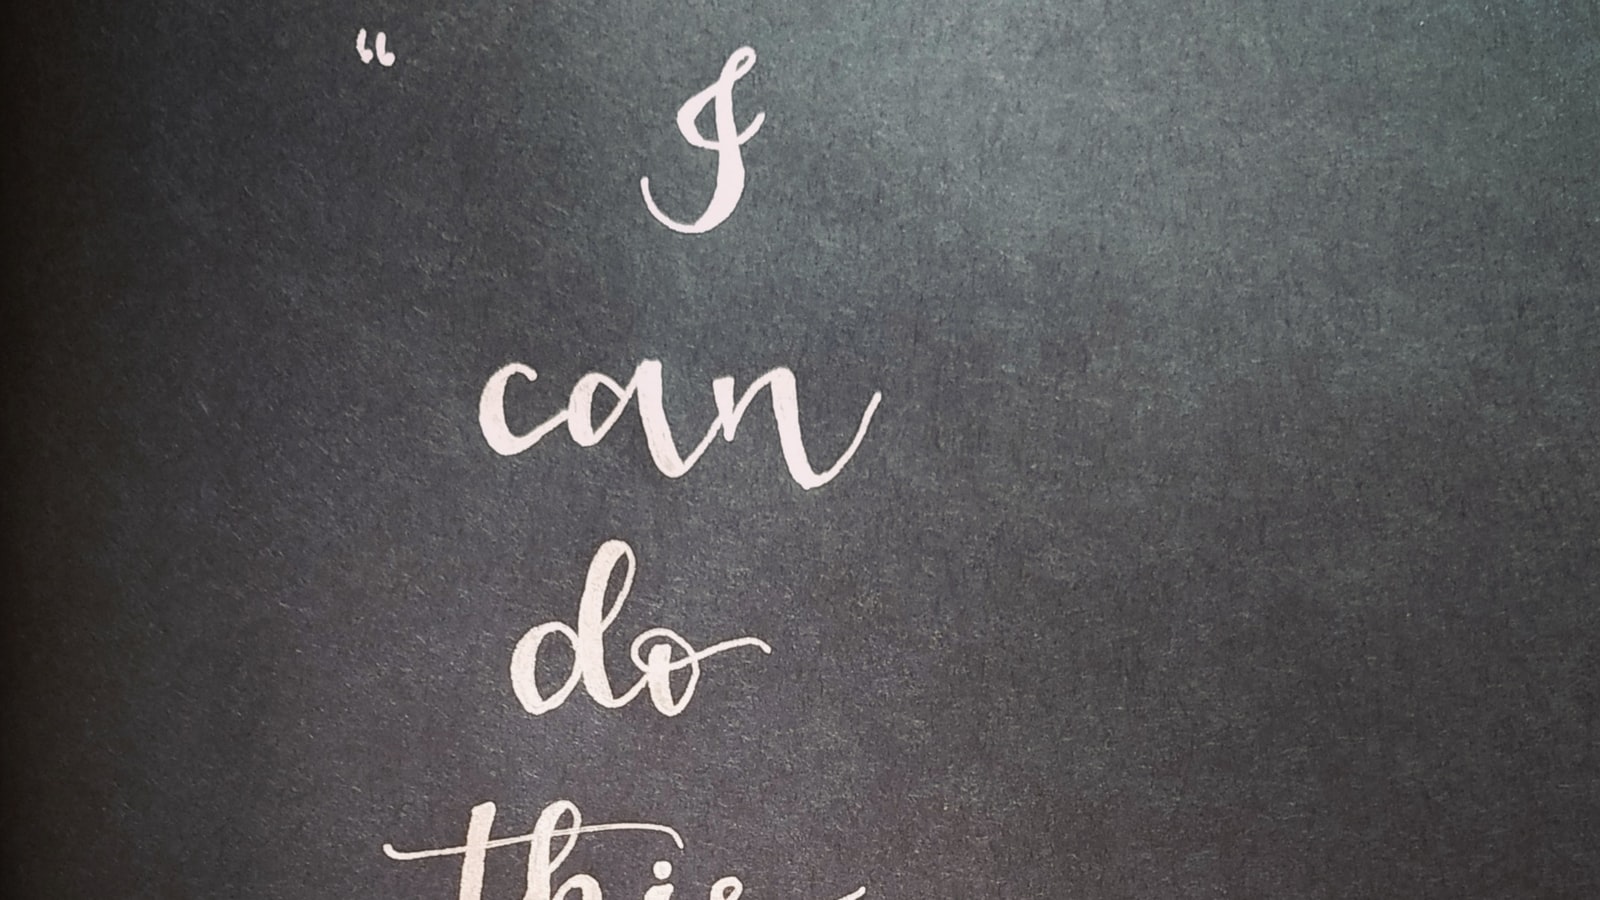 “ I
can
do
this